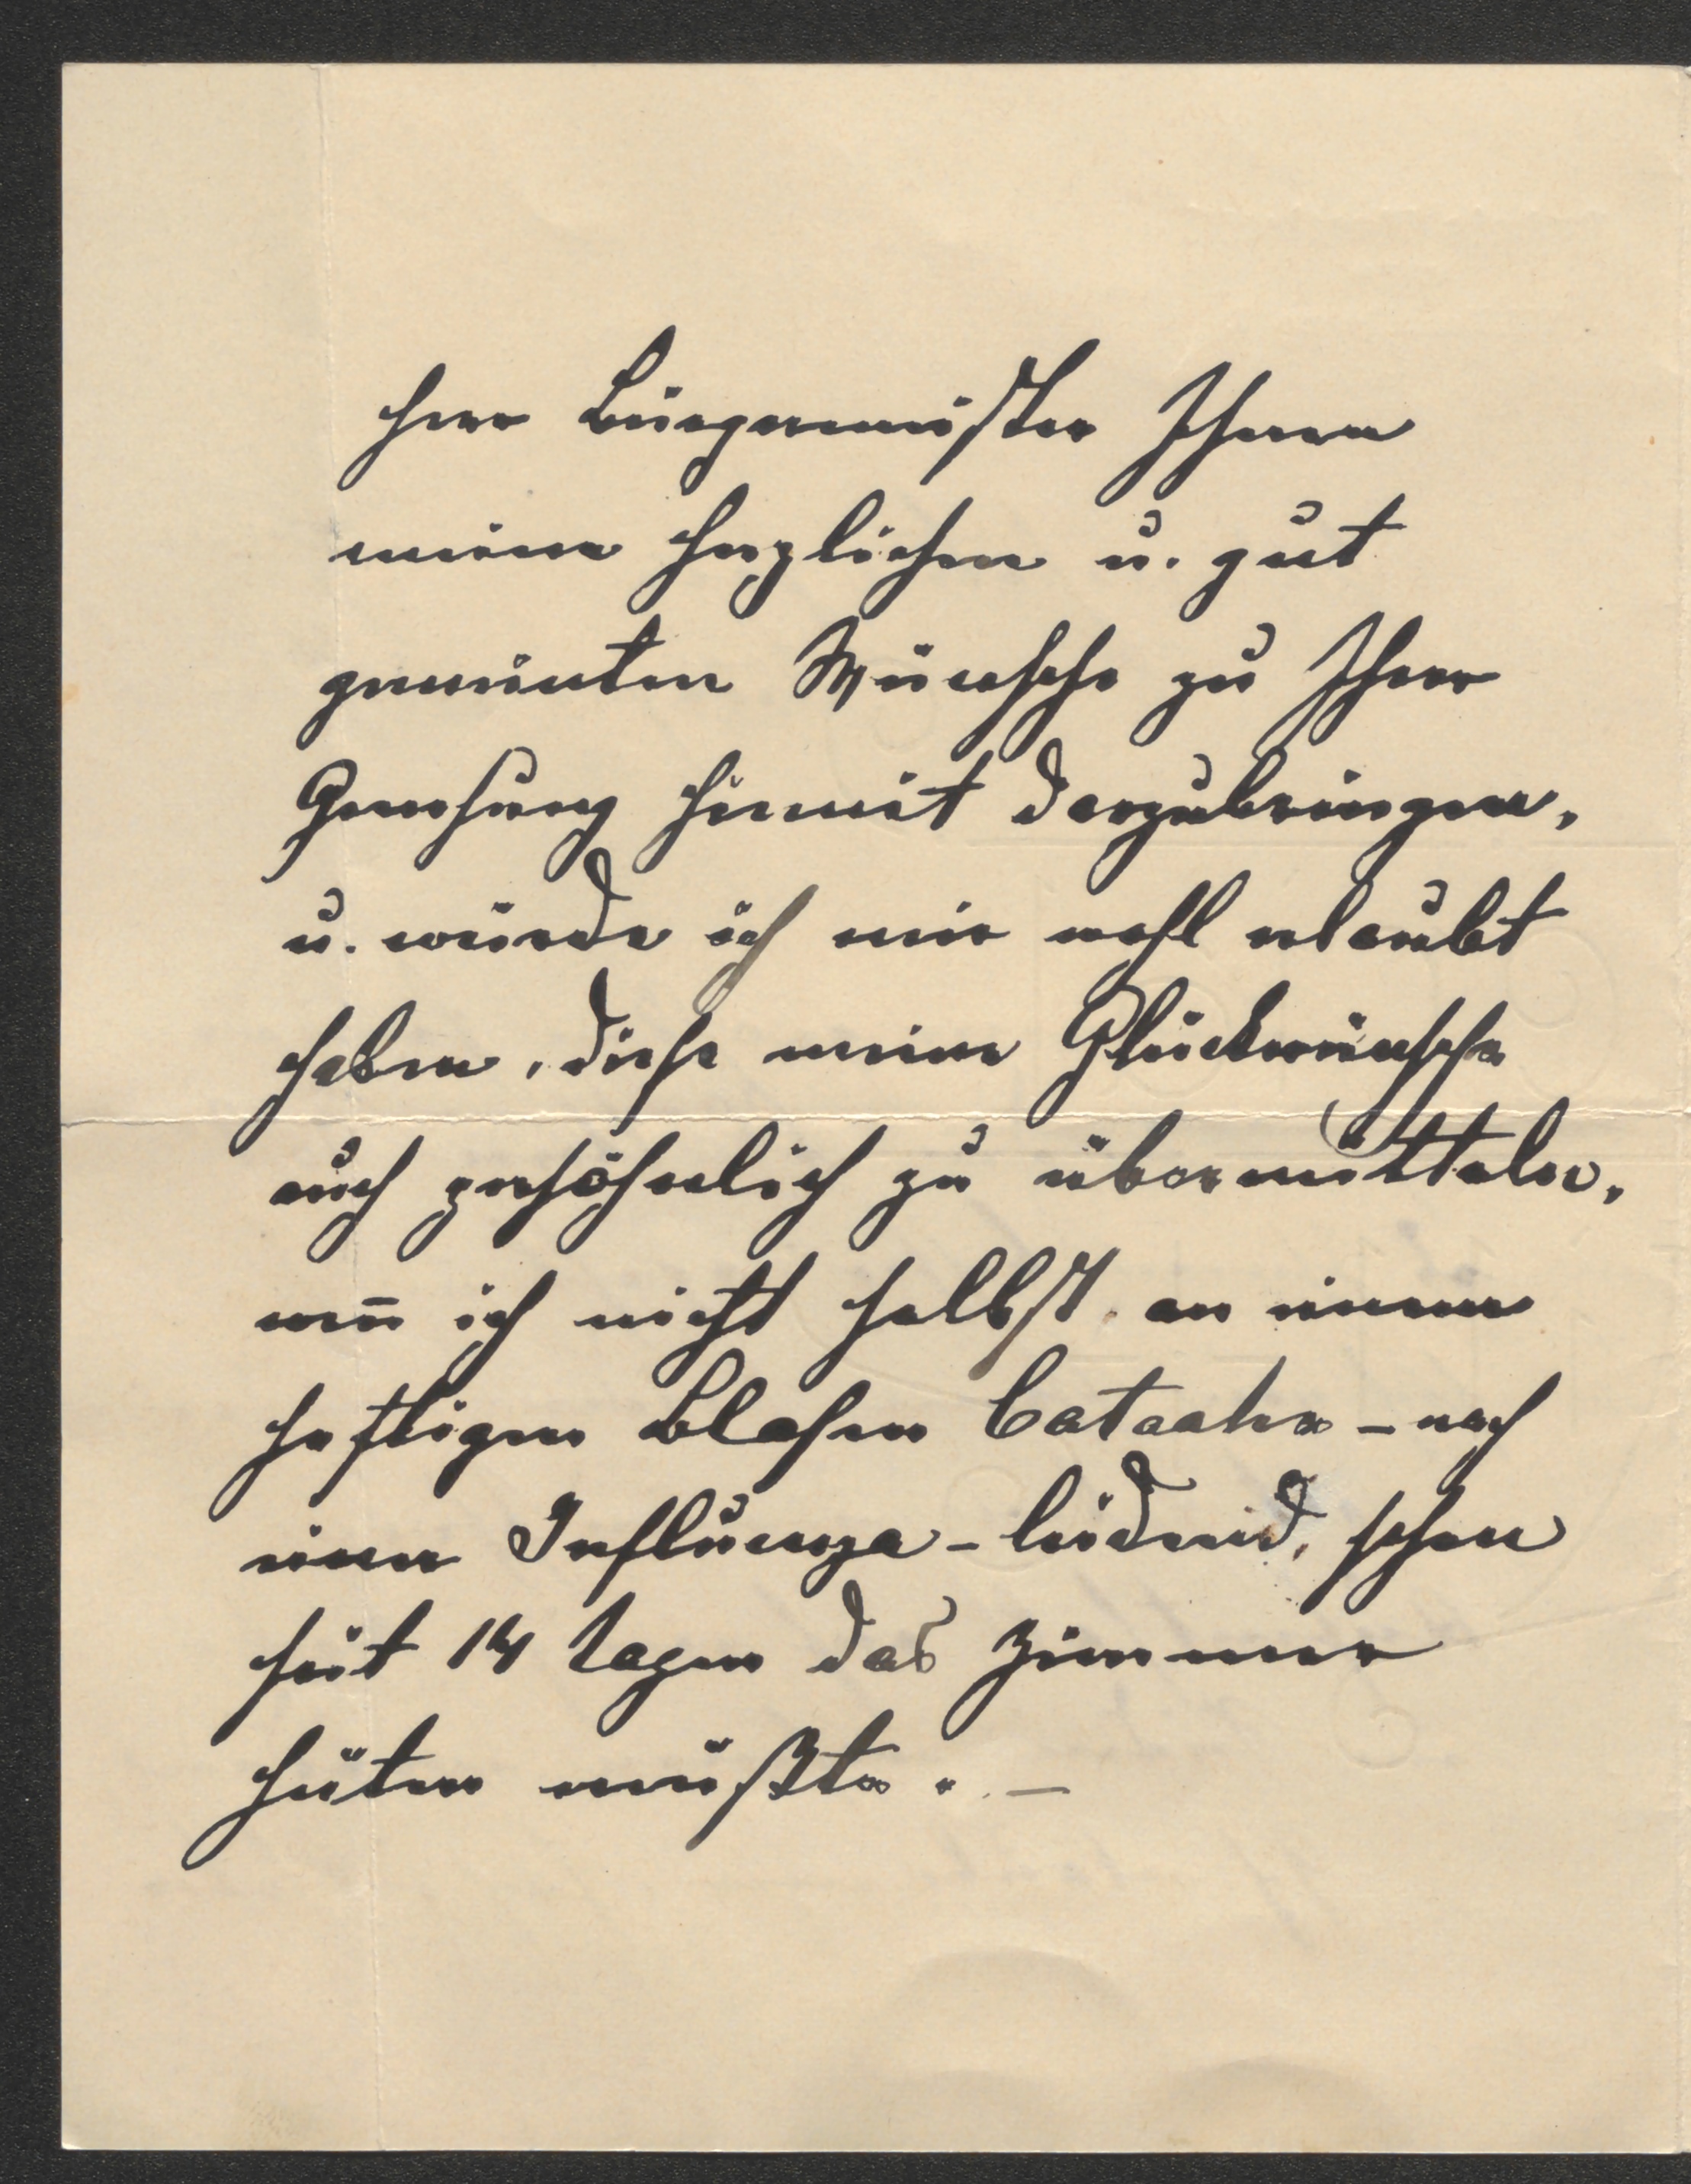 Herr Bürgermeister Ihnen
meine herzlichen u. gut
gemeinten Wünsche zu Ihrer
Genesung hiemit darzubringen,
u. würde ich mir wohl erlaubt
haben, diese meine Glückwünsche
auch persöhnlich zu übermitteln,
weñ ich nicht selbst an einem
heftigen Blasen Catarhr - nach
einer Influenza - leidend, schon
seit 14 Tagen das Zimmer
hüten müßte. —